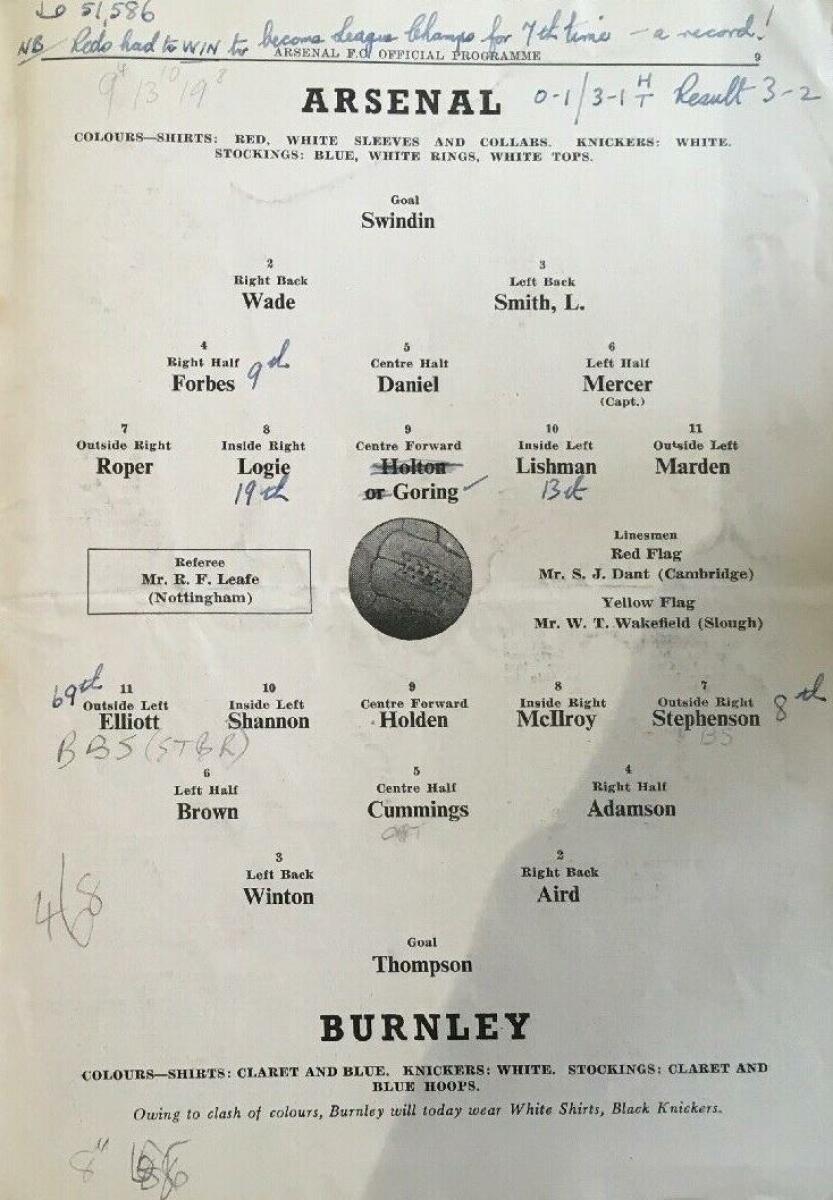 51,586
NB Reds had to WIN to become League Champs for 7th time - a record!
ARSENAL F.C. OFFICIAL PROGRAMME
9
9 13 19
ARSENAL 0-1/3-1 HT Result 3-2
COLOURS—SHIRTS: RED, WHITE SLEEVES AND COLLARS. KNICKERS: WHITE.
STOCKINGS: BLUE, WHITE RINGS, WHITE TOPS.
Goal
Swindin
2 3
Right Back Left Back
Wade Smith, L.
4 5 6
Right Half Centre Half Left Half
Forbes 9th Daniel Mercer
(Capt.)
7 8 9 10 11
Outside Right Inside Right Centre Forward Inside Left Outside Left
Roper Logie Holton Lishman Marden
19th or Goring 13th
Referee
Mr. R. F. Leafe
(Nottingham)
Linesmen
Red Flag
Mr. S. J. Dant (Cambridge)
Yellow Flag
Mr. W. T. Wakefield (Slough)
69th 11 10 9 8 7
Outside Left Inside Left Centre Forward Inside Right Outside Right 8th
Elliott Shannon Holden McIlroy Stephenson
BBS (STBR) BS
6 5 4
Left Half Centre Half Right Half
Brown Cummings Adamson
3 2
Left Back Right Back
Winton Aird
Goal
Thompson
BURNLEY
COLOURS—SHIRTS: CLARET AND BLUE. KNICKERS: WHITE. STOCKINGS: CLARET AND
BLUE HOOPS.
Owing to clash of colours, Burnley will today wear White Shirts, Black Knickers.